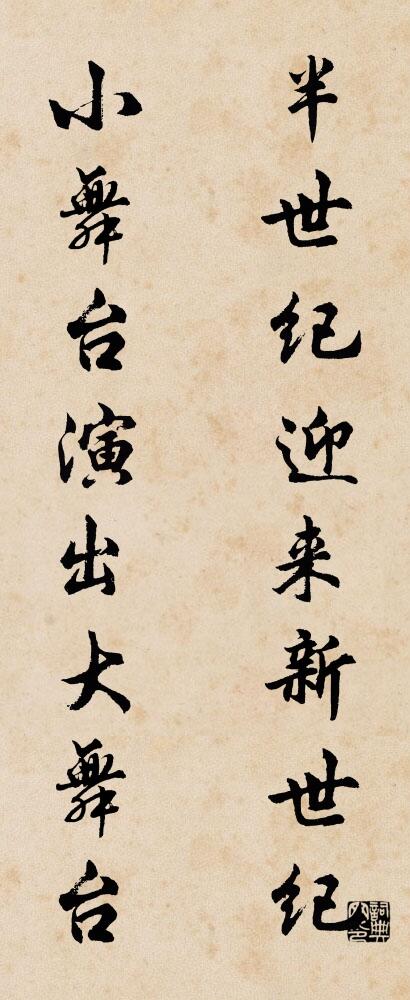 半世纪迎来新世纪
小舞台演出大舞台